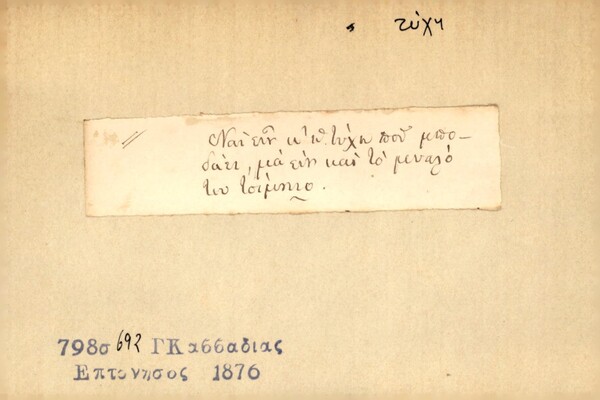 τύχη
Ναὶ εἶν κ' ἡ τύχη ποῦ μπο-
δάει, μὰ εἶν καὶ τὸ μυαλὸ
του τσίμητο.
798σ 692 ΓΚασσαδιας
Επτονησος 1876